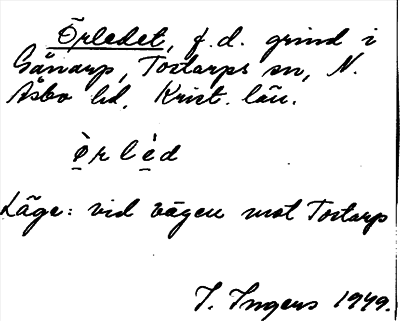 Örledet, f.d. grind i
Gånarp, Tostarps sn, N.
Åsbo hd, Krist. län.
ö̀rlèd
Läge: vid vägen mot Tostarp
I. Ingers 1949.